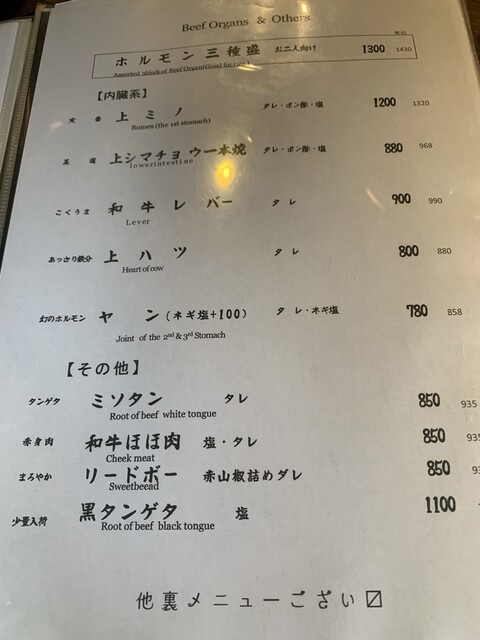 Beef Organs & Others
税込
ホルモン三種盛 お二人向け 1300 1430
Assorted 3kinds of Beef Organ(Good for
【内臓系】
定番 上ミノ タレ・ポン酢・塩 1200 1320
Rumen (the 1st stomach)
王道 上シマチョウ一本焼 タレ・ポン酢・塩 880 968
lowerintestine
こくうま 和牛レバー タレ 900 990
Lever
あっさり鉄分 上ハツ タレ 800 880
Heart of cow
幻のホルモン ヤン(ネギ塩+100) タレ・ネギ塩 780 858
Joint of the 2nd & 3rd Stomach
【その他】
タンゲタ ミソタン タレ 850 935
Root of beef white tongue
赤身肉 和牛ほほ肉 塩・タレ 850 935
Cheek meat
まろやか リードボー 赤山椒詰めダレ 850
Sweetbead
少量入荷 黒タンゲタ 塩 1100
Root of beef black tongue
他裏メニューござい〼